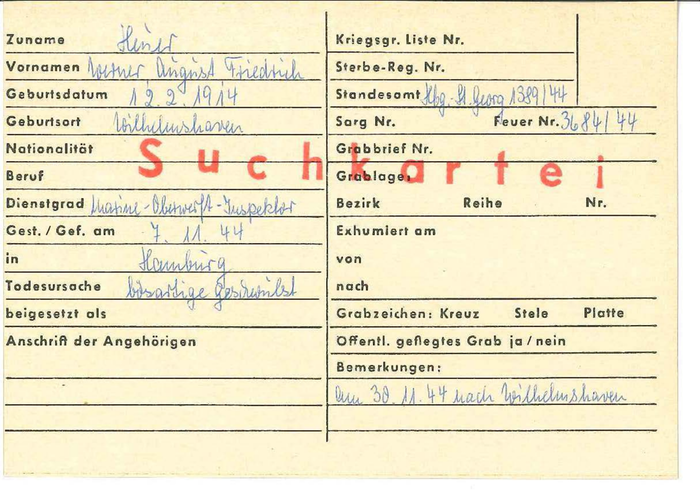 Zuname Heuer
Vornamen Werner August Friedrich
Geburtsdatum 12.2.1914
Geburtsort Wilhelmshaven
Nationalität
Beruf
Dienstgrad Marine-Oberwerft-Inspektor
Gest. / Gef. am 7. 11. 44
in Hamburg
Todesursache bösartige Geschwulst
beigesetzt als
Anschrift der Angehörigen
Suchkartei
Kriegsgr. Liste Nr.
Sterbe-Reg. Nr.
Standesamt Hbg.-St. Georg 1389/44
Sarg Nr. Feuer Nr. 3684/44
Grabbrief Nr.
Grablage:
Bezirk Reihe Nr.
Exhumiert am
von
nach
Grabzeichen: Kreuz Stele Platte
Öffentl. geflegtes Grab ja / nein
Bemerkungen:
am 30.11.44 nach Wilhelmshaven